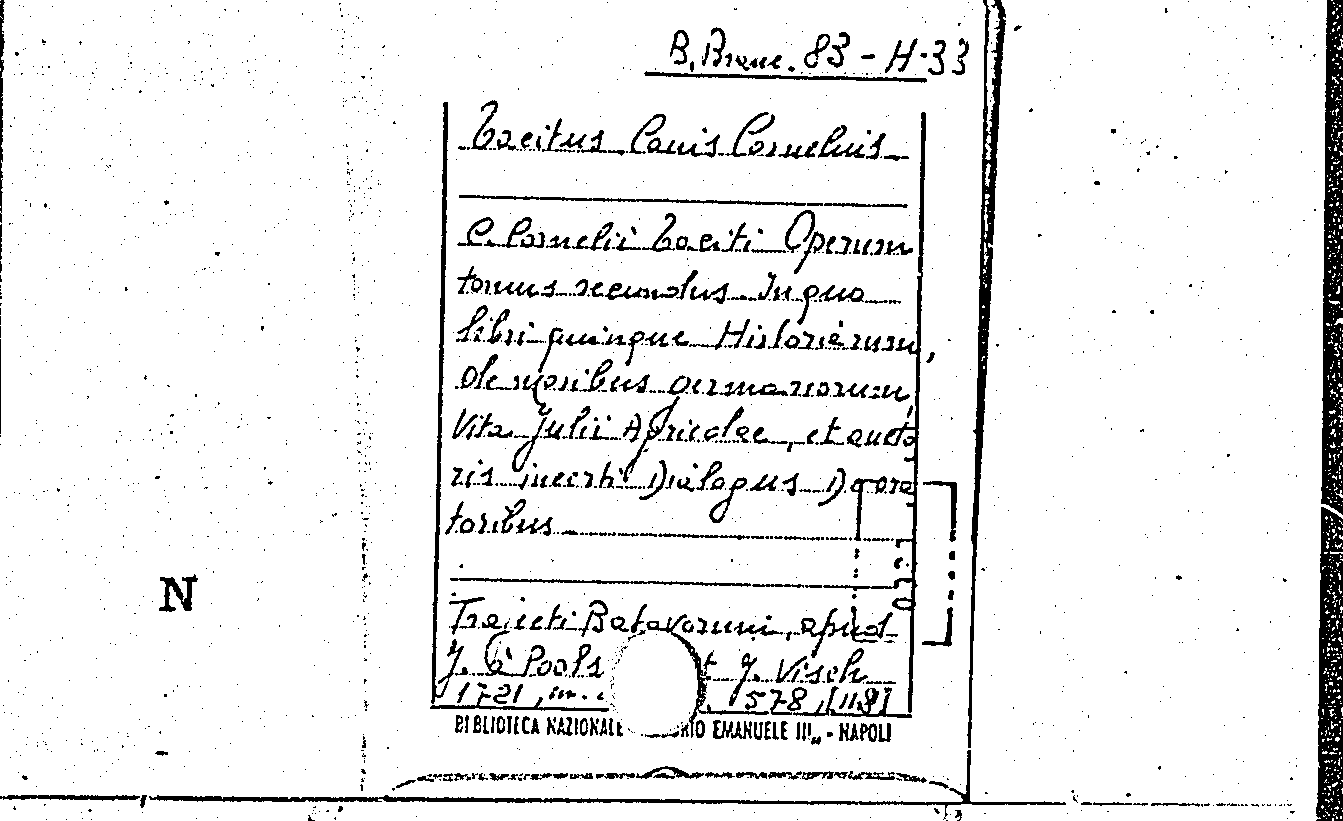 B. Branc. 83 - H-33
Tacitus Caius Cornelius
C. Cornelii Taciti Operum
tomus secundus. In quo
libri quinque Historiarum,
de moribus germanorum,
Vita Julii Agricolae, et aucto
ris incerti Dialogus De ora
toribus
Trajecti Batavorum, apud
J. à Pools t J. Visch
1721, in. 578, [118]
BIBLIOTECA NAZIONALE RIO EMANUELE III„ - NAPOLI
N